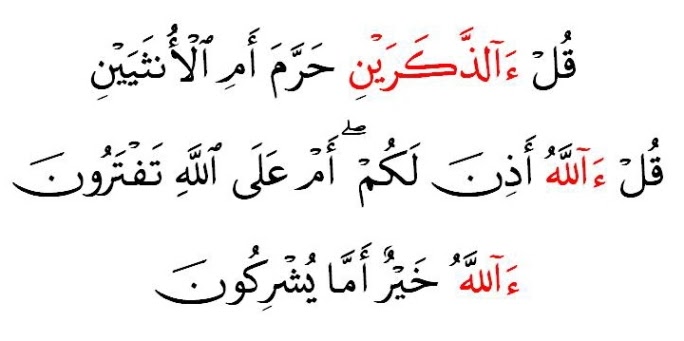 قُلْ ءَآلذَّكَرَيْنِ حَرَّمَ أَمِ ٱلْأُنثَيَيْنِ
قُلْ ءَآللَّهُ أَذِنَ لَكُمْ ۖ أَمْ عَلَى ٱللَّهِ تَفْتَرُونَ
ءَآللَّهُ خَيْرٌ أَمَّا يُشْرِكُونَ